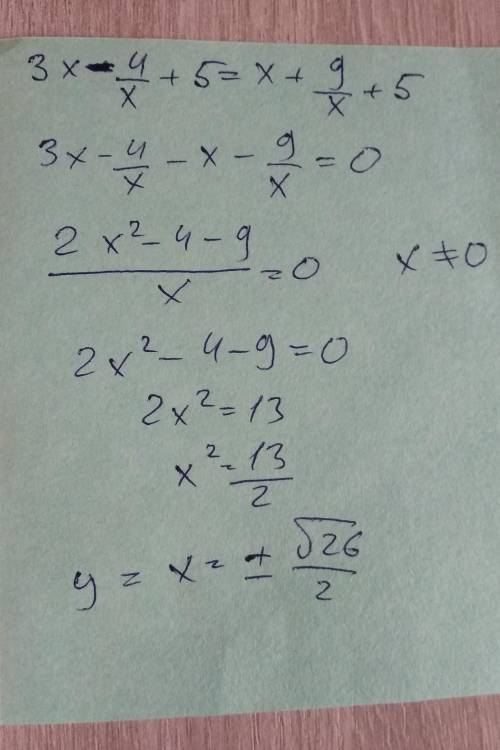 3x - 4/x + 5 = x + 9/x + 5
3x - 4/x - x - 9/x = 0
(2 x² - 4 - 9)/x = 0    x ≠ 0
2x² - 4 - 9 = 0
2x² = 13
x² = 13/2
y = x = ± √26/2